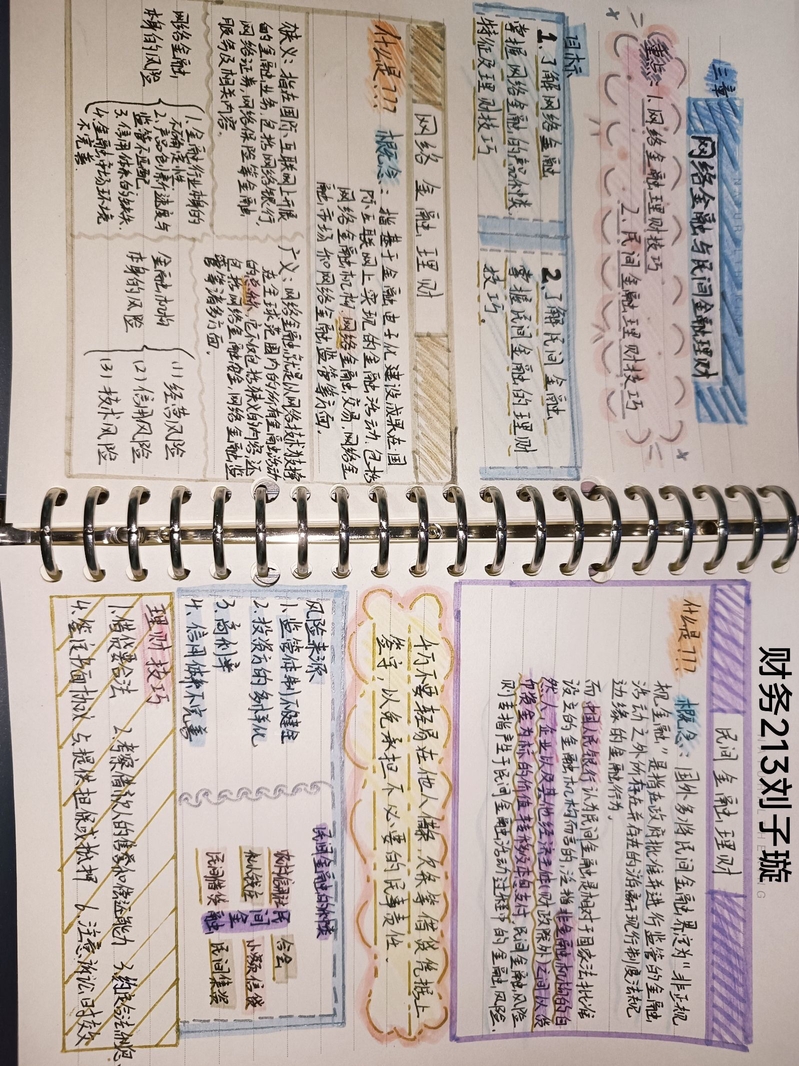 三章
网络金融与民间金融理财
重点: 1. 网络金融理财技巧
2. 民间金融理财技巧
目标
1、了解网络金融
掌握网络金融的产品种类
特征及理财技巧
2、了解民间金融
掌握民间金融的理财
技巧。
网络金融理财
什么是???
概念: 指基于金融电子化建设成果在国
际互联网上实现的金融活动,包括
网络金融机构,网络金融交易,网络金
融市场和网络金融监管等方面。
狭义: 指在国际互联网上开展
的金融业务,包括网络银行,
网络证券,网络保险等金融
服务及相关内容。
广义: 网络金融就是以网络技术为支撑
在全球范围内的所有金融活动
的总称,它不仅包括狭义的内容还
包括网络金融安全,网络金融监
管等诸多方面。
网络金融
本身的风险
1. 金融行业本身的
不确定性
2. 产品创新速度与
监管不匹配
3. 信用体系的缺失
4. 金融市场环境
不完善
金融机构
本身的风险
(1) 经营风险
(2) 信用风险
(3) 技术风险
财务213刘子璇
民间金融理财
什么是???
概念: 国外多将民间金融界定为"非正规
金融"是指在政府批准并进行监管的金融
活动之外所存在的游离于现行制度法规
边缘的金融行为。
而中国人民银行认为民间金融是相对于国家依法批准
设立的金融机构而言的,泛指非金融机构的自
然人、企业以及其他经济主体(财政除外)之间以货
币资金为标的的价值转移及本息支付,民间金融风险
则专指产生于民间金融活动过程中的金融风险。
千万不要轻易在他人借款欠条等借贷凭据上
签字,以免承担不必要的民事责任。
风险来源
1. 监管体制不健全
2. 投资方的多样化
3. 高利率
4、信用体系不完善
民间金融的种类
农村信用社
合会
私人钱庄
小额信贷
民间借贷
民间集资
民间金融
理财技巧
1. 借贷要合法 2. 考察借款人的信誉和偿还能力 3. 约定合法利息
4. 签注书面协议 5. 提供担保或抵押 6. 注意诉讼时效